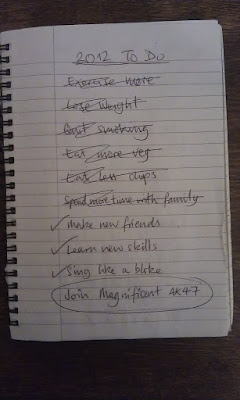 2012 TO DO
Exercise more
Lose weight
Quit smoking
Eat more veg
Eat less chips
Spend more time with family
✓ Make new friends
✓ Learn new skills
✓ Sing like a bloke
Join Magnificent AK47